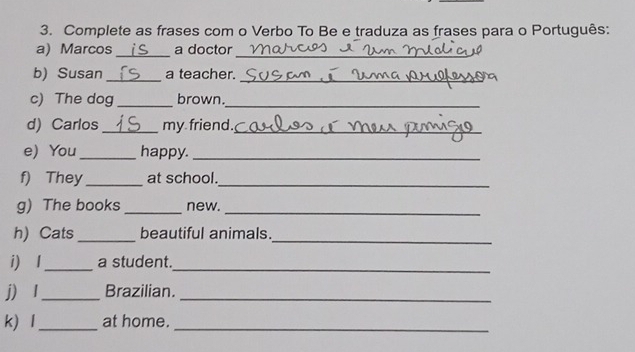 3. Complete as frases com o Verbo To Be e traduza as frases para o Português:
a) Marcos is a doctor marcos é um médico
b) Susan is a teacher. Susan é uma professora
c) The dog ______ brown. ______
d) Carlos is my friend. carlos é meu amigo
e) You ______ happy. ______
f) They ______ at school. ______
g) The books ______ new. ______
h) Cats ______ beautiful animals. ______
i) I ______ a student. ______
j) I ______ Brazilian. ______
k) I ______ at home. ______